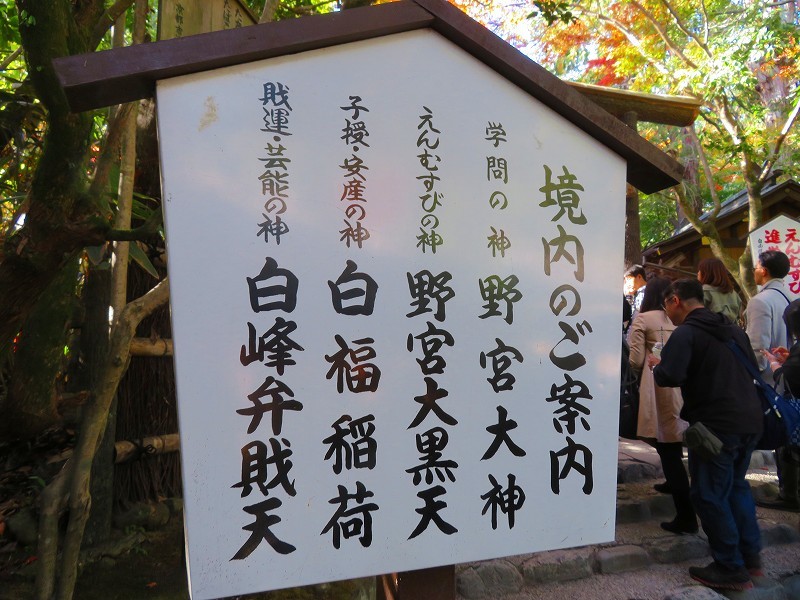 境内のご案内
学問の神 野宮大神
えんむすびの神 野宮大黒天
子授・安産の神 白福稲荷
財運・芸能の神 白峰弁財天
えんむすび
進学